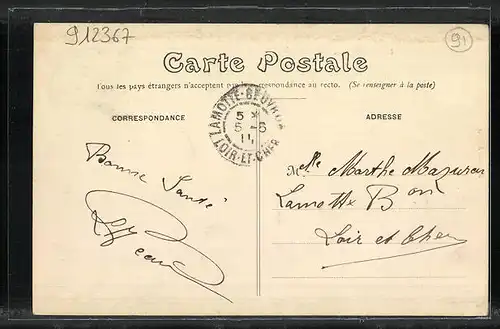 912367
91
Carte Postale
Tous les pays étrangers n'acceptent pas la correspondance au recto. (Se renseigner à la poste)
CORRESPONDANCE
ADRESSE
LAMOTTE-BEUVRON
5 *
5-6
11
LOIR-ET-CHER
Bonne Santé
Mlle Marthe
Lamotte Bon
Loir et Cher